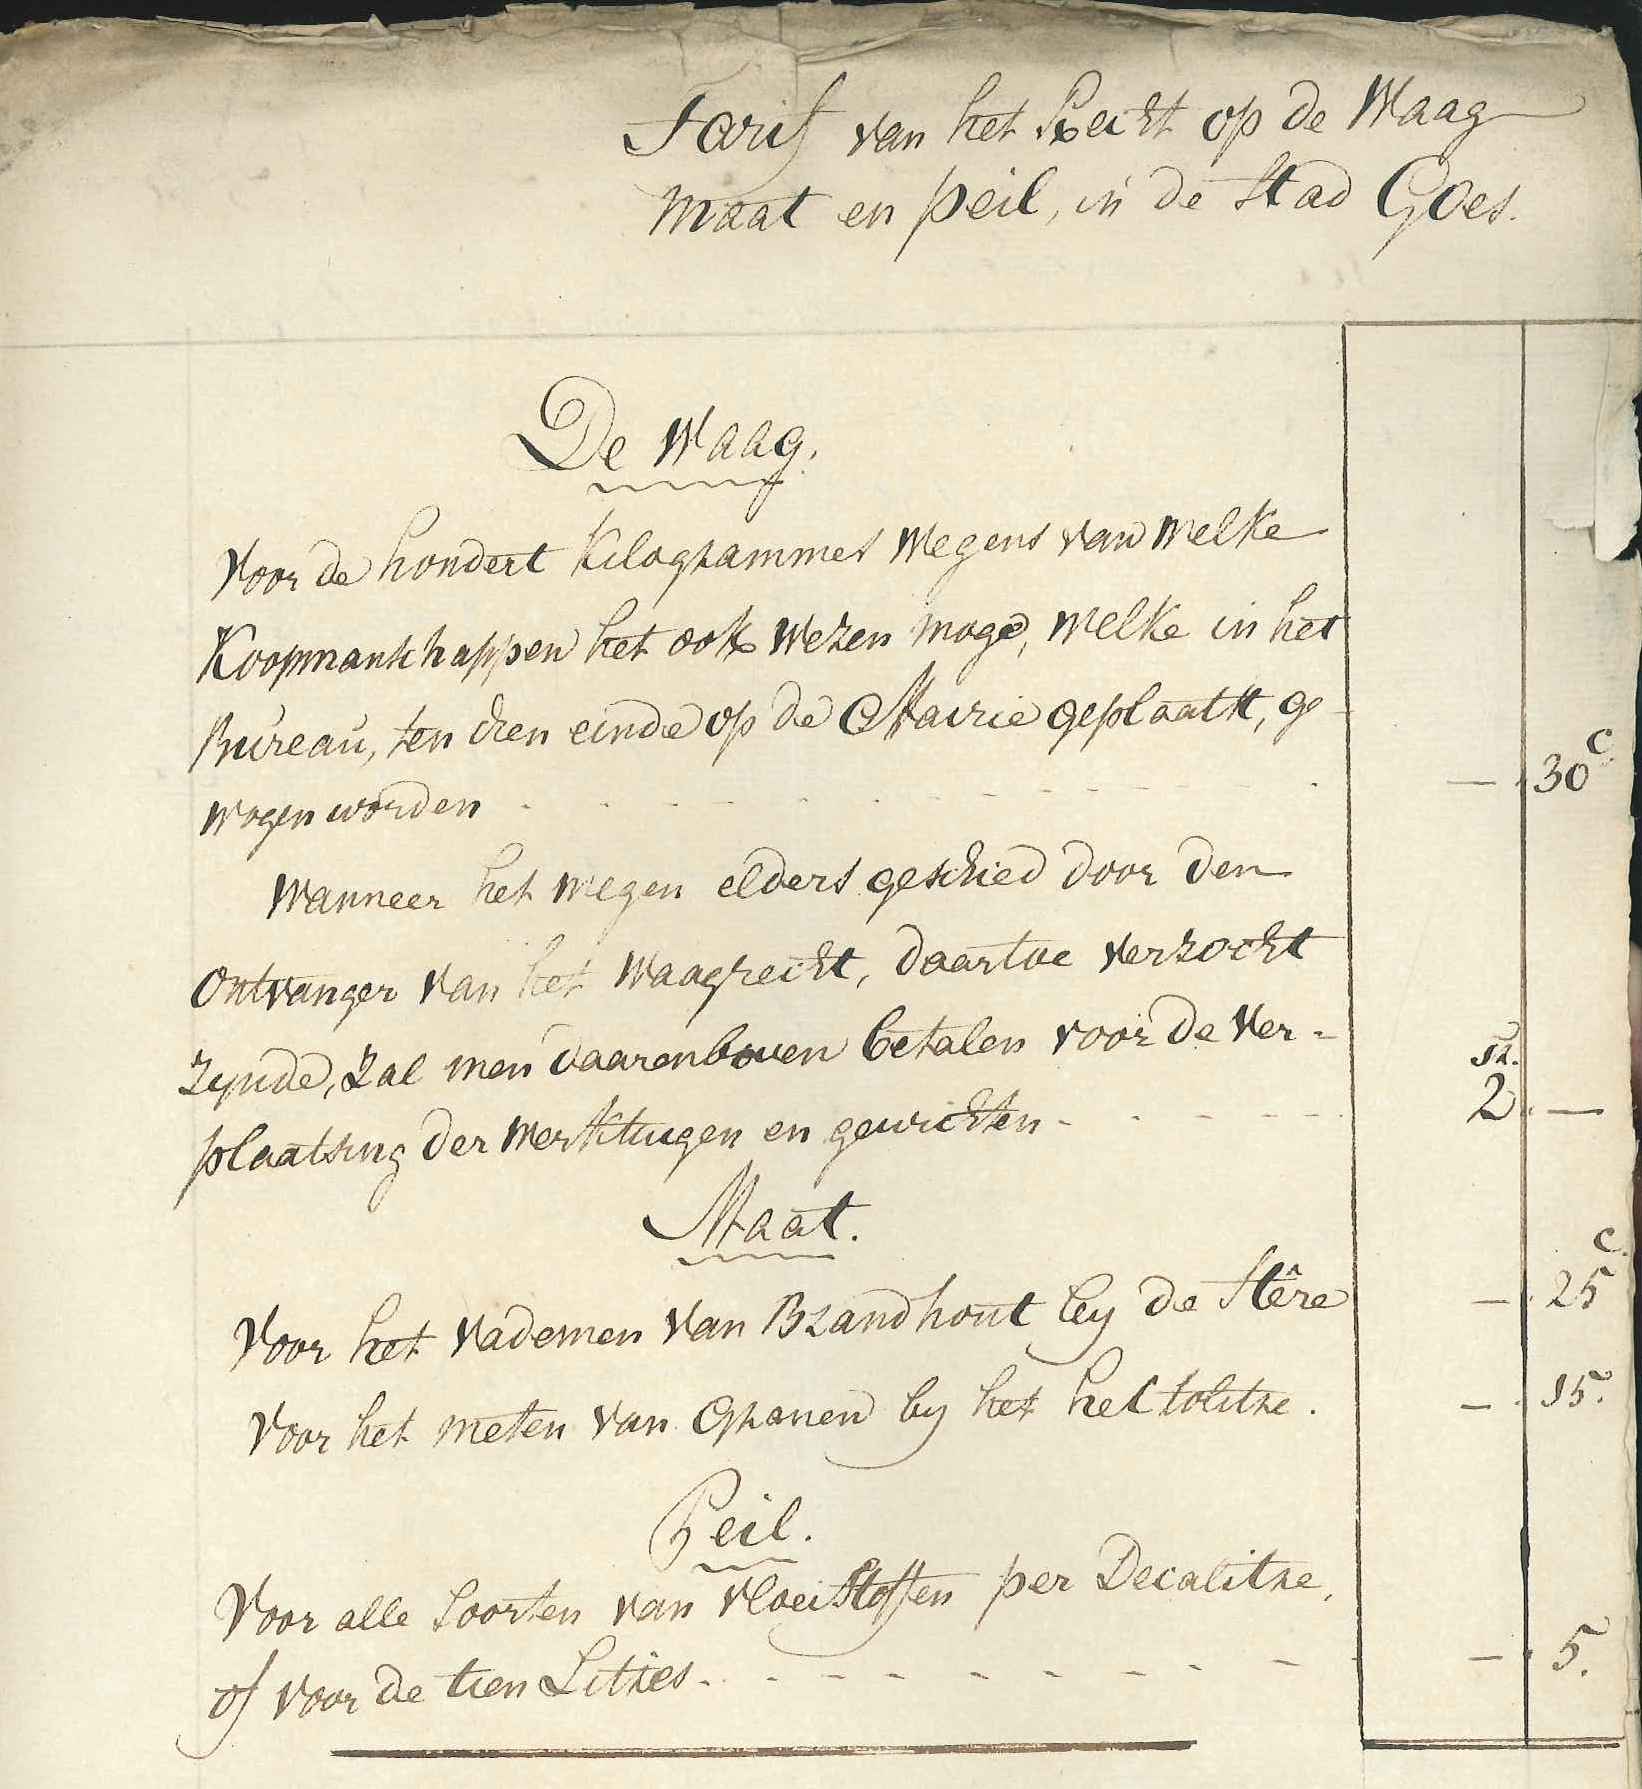 Tarif van het Recht op de Waag
Maat en peil, in de Stad Goes.
De Waag.
Voor de hondert Kilogrammes Wegens van Welke
Koopmanschappen het ook Wezen moge, Welke in het
Bureau, ten dien einde op de Mairie geplaatst, ge
wogen worden - - - - - - - - - - - — 30 c
Wanneer het Wegen elders geschied door den
Ontvanger van het Waagrecht, daartoe Verzocht
Zynde, Zal men daarenboven betalen voor de Ver-
plaatsing der Werktuigen en gewichten - - - - - fr. 2 —
Maat.
Voor het Vademen Van Brandhout by de Stêre — 25 c.
Voor het meten Van Granen by het hectolitre. — 15.
Peil.
Voor alle Soorten van Vloeistoffen per Decalitre,
of voor de tien Litres - - - - - - - - - — 5.